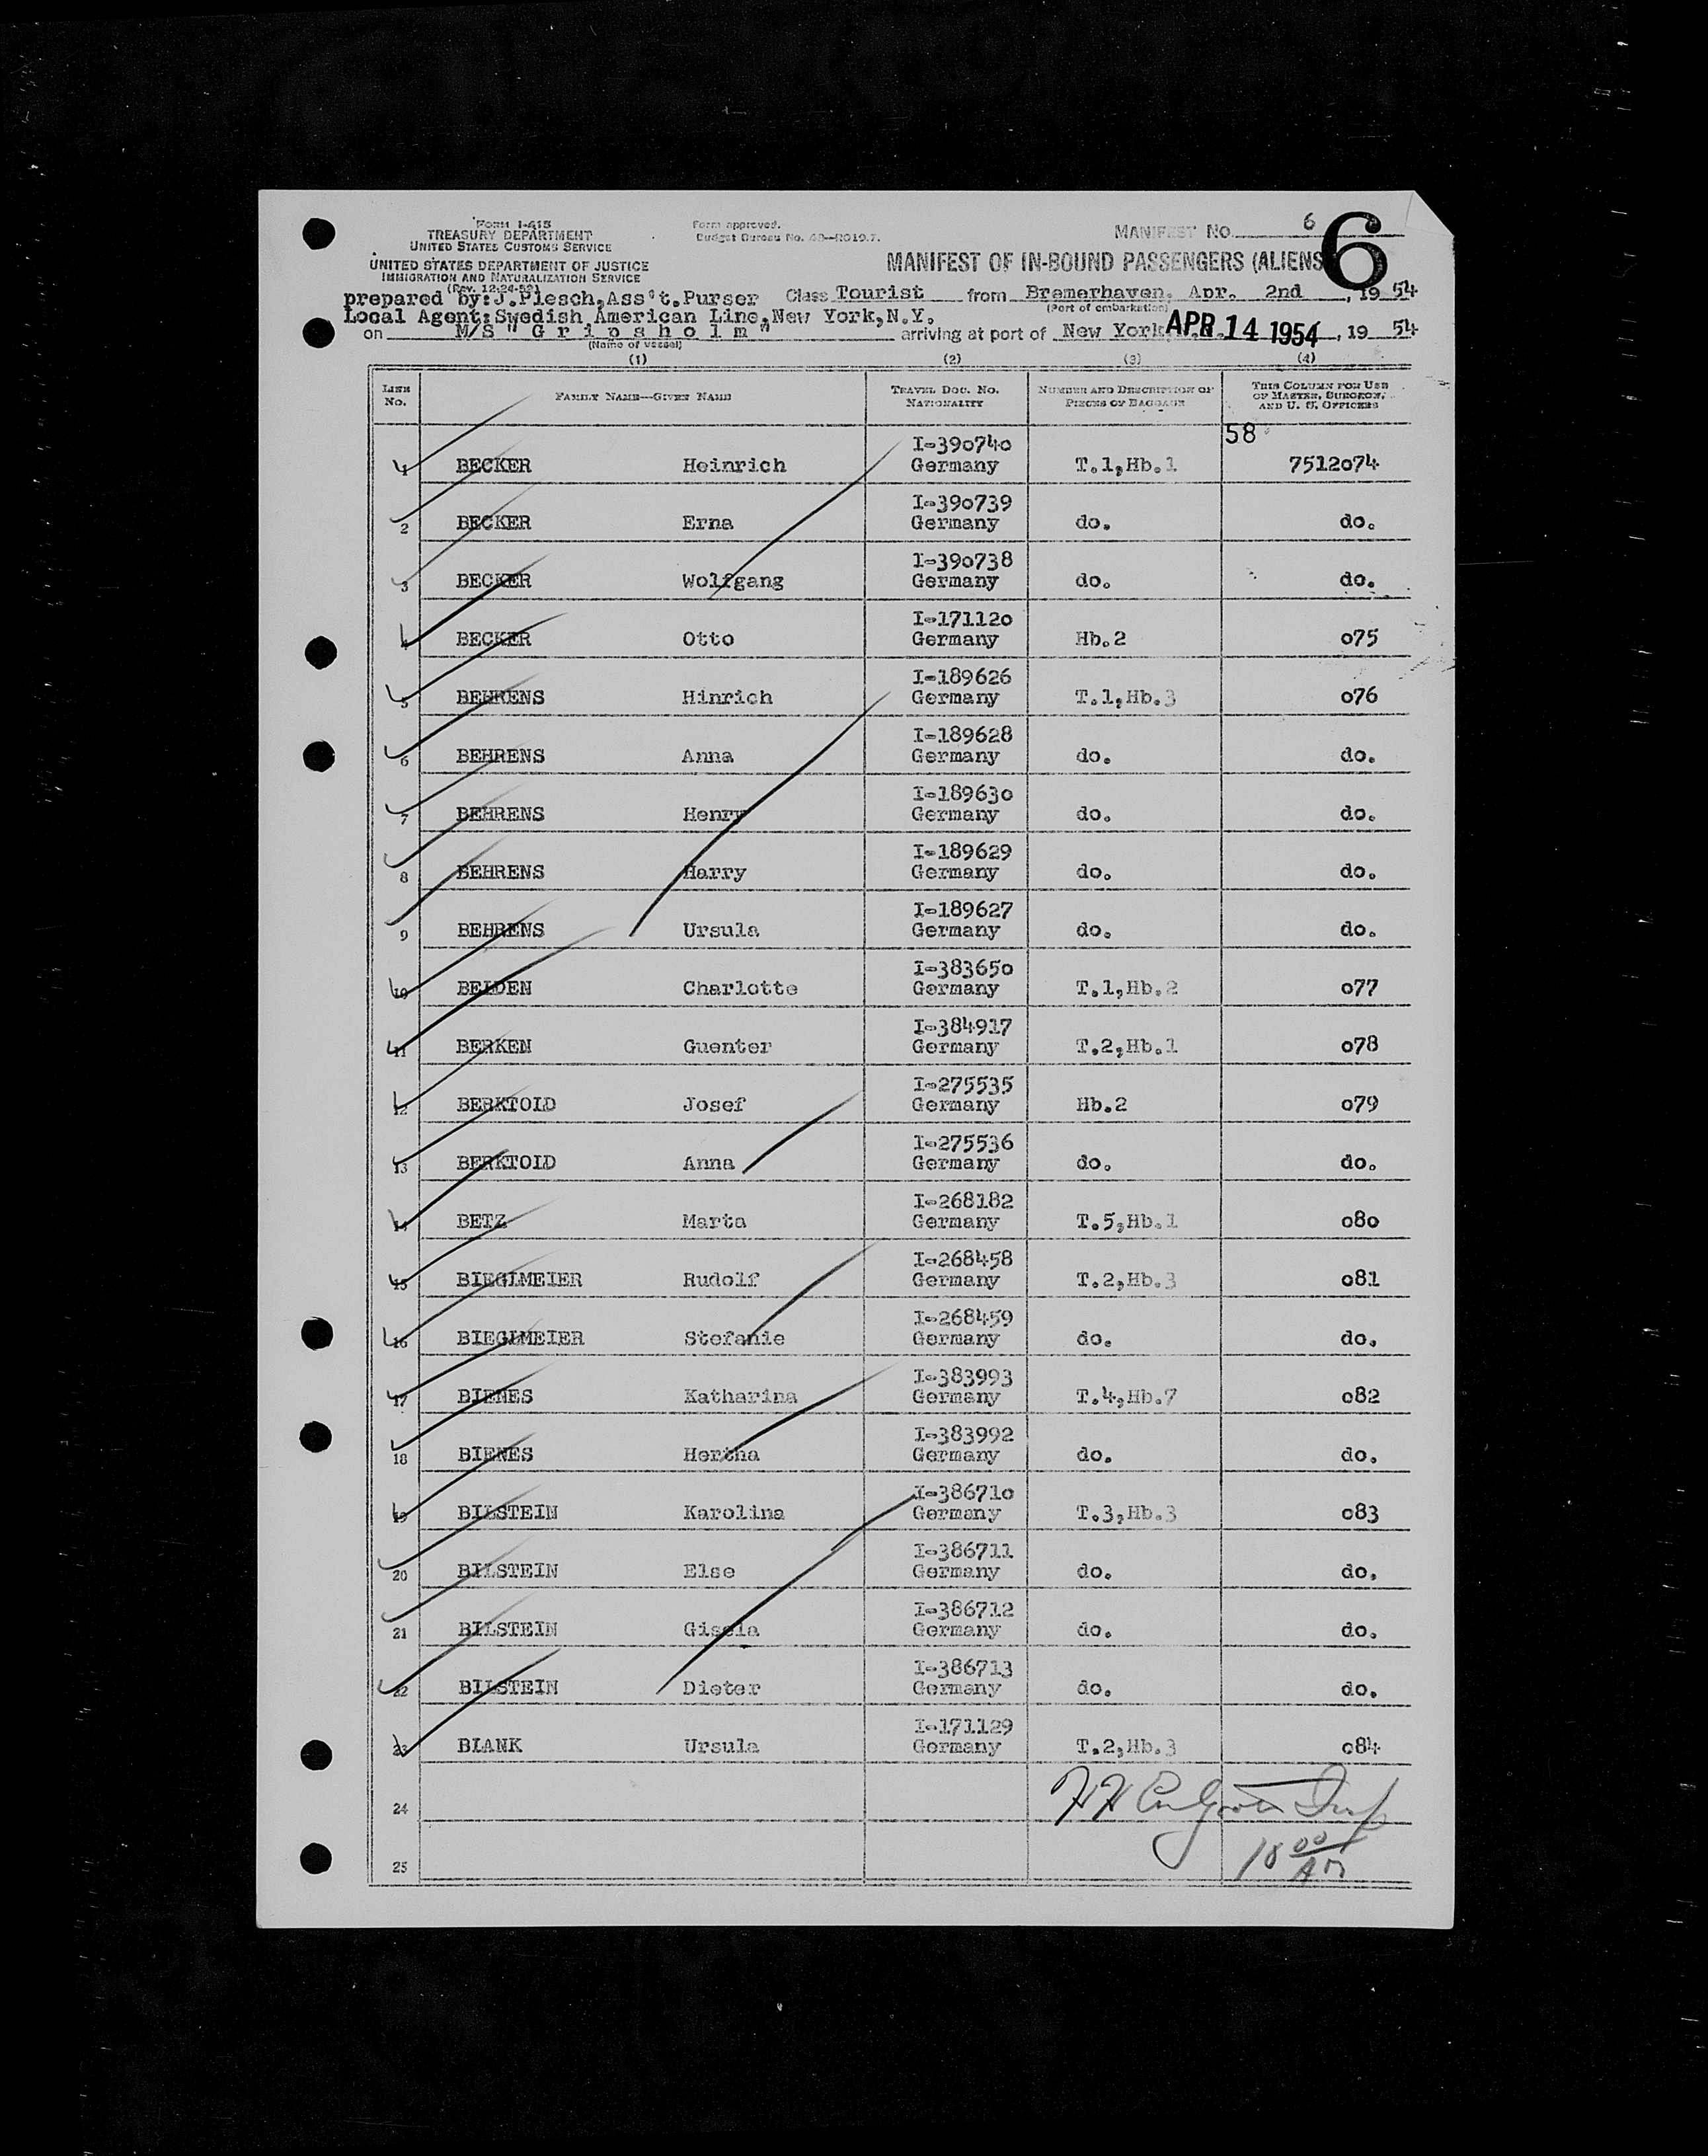 Form I-415
TREASURY DEPARTMENT
UNITED STATES CUSTOMS SERVICE
UNITED STATES DEPARTMENT OF JUSTICE
IMMIGRATION AND NATURALIZATION SERVICE
(Rev. 12-24-52)
Form approved.
Budget Bureau No. 43—R019.7.
MANIFEST No. 6
6
MANIFEST OF IN-BOUND PASSENGERS (ALIENS
prepared by: J.Plesch,Ass't.Purser Class Tourist from Bremerhaven, Apr. 2nd , 19 54
(Port of embarkation)
Local Agent: Swedish American Line,New York,N.Y.
on M/S " G r i p s h o l m " arriving at port of New York, APR 14 1954 , 19 54
(Name of vessel)
(1) (2) (3) (4)
LINE No. FAMILY NAME—GIVEN NAME TRAVEL DOC. No. NATIONALITY NUMBER AND DESCRIPTION OF PIECES OF BAGGAGE THIS COLUMN FOR USE OF MASTER, SURGEON, AND U. S. OFFICERS
58
I-390740
1 BECKER Heinrich Germany T.1,Hb.1 7512074
I-390739
2 BECKER Erna Germany do. do.
I-390738
3 BECKER Wolfgang Germany do. do.
I-171120
4 BECKER Otto Germany Hb.2 075
I-189626
5 BEHRENS Hinrich Germany T.1,Hb.3 076
I-189628
6 BEHRENS Anna Germany do. do.
I-189630
7 BEHRENS Henry Germany do. do.
I-189629
8 BEHRENS Harry Germany do. do.
I-189627
9 BEHRENS Ursula Germany do. do.
I-383650
10 BEIDEN Charlotte Germany T.1,Hb.2 077
I-384917
11 BERKEN Guenter Germany T.2,Hb.1 078
I-275535
12 BERKTOLD Josef Germany Hb.2 079
I-275536
13 BERKTOLD Anna Germany do. do.
I-268182
14 BETZ Marta Germany T.5,Hb.1 080
I-268458
15 BIEGLMEIER Rudolf Germany T.2,Hb.3 081
I-268459
16 BIEGLMEIER Stefanie Germany do. do.
I-383993
17 BIENES Katharina Germany T.4,Hb.7 082
I-383992
18 BIENES Hertha Germany do. do.
I-386710
19 BILSTEIN Karolina Germany T.3,Hb.3 083
I-386711
20 BILSTEIN Else Germany do. do.
I-386712
21 BILSTEIN Gisela Germany do. do.
I-386713
22 BILSTEIN Dieter Germany do. do.
I-171129
23 BLANK Ursula Germany T.2,Hb.3 084
24
25
10 00 AM